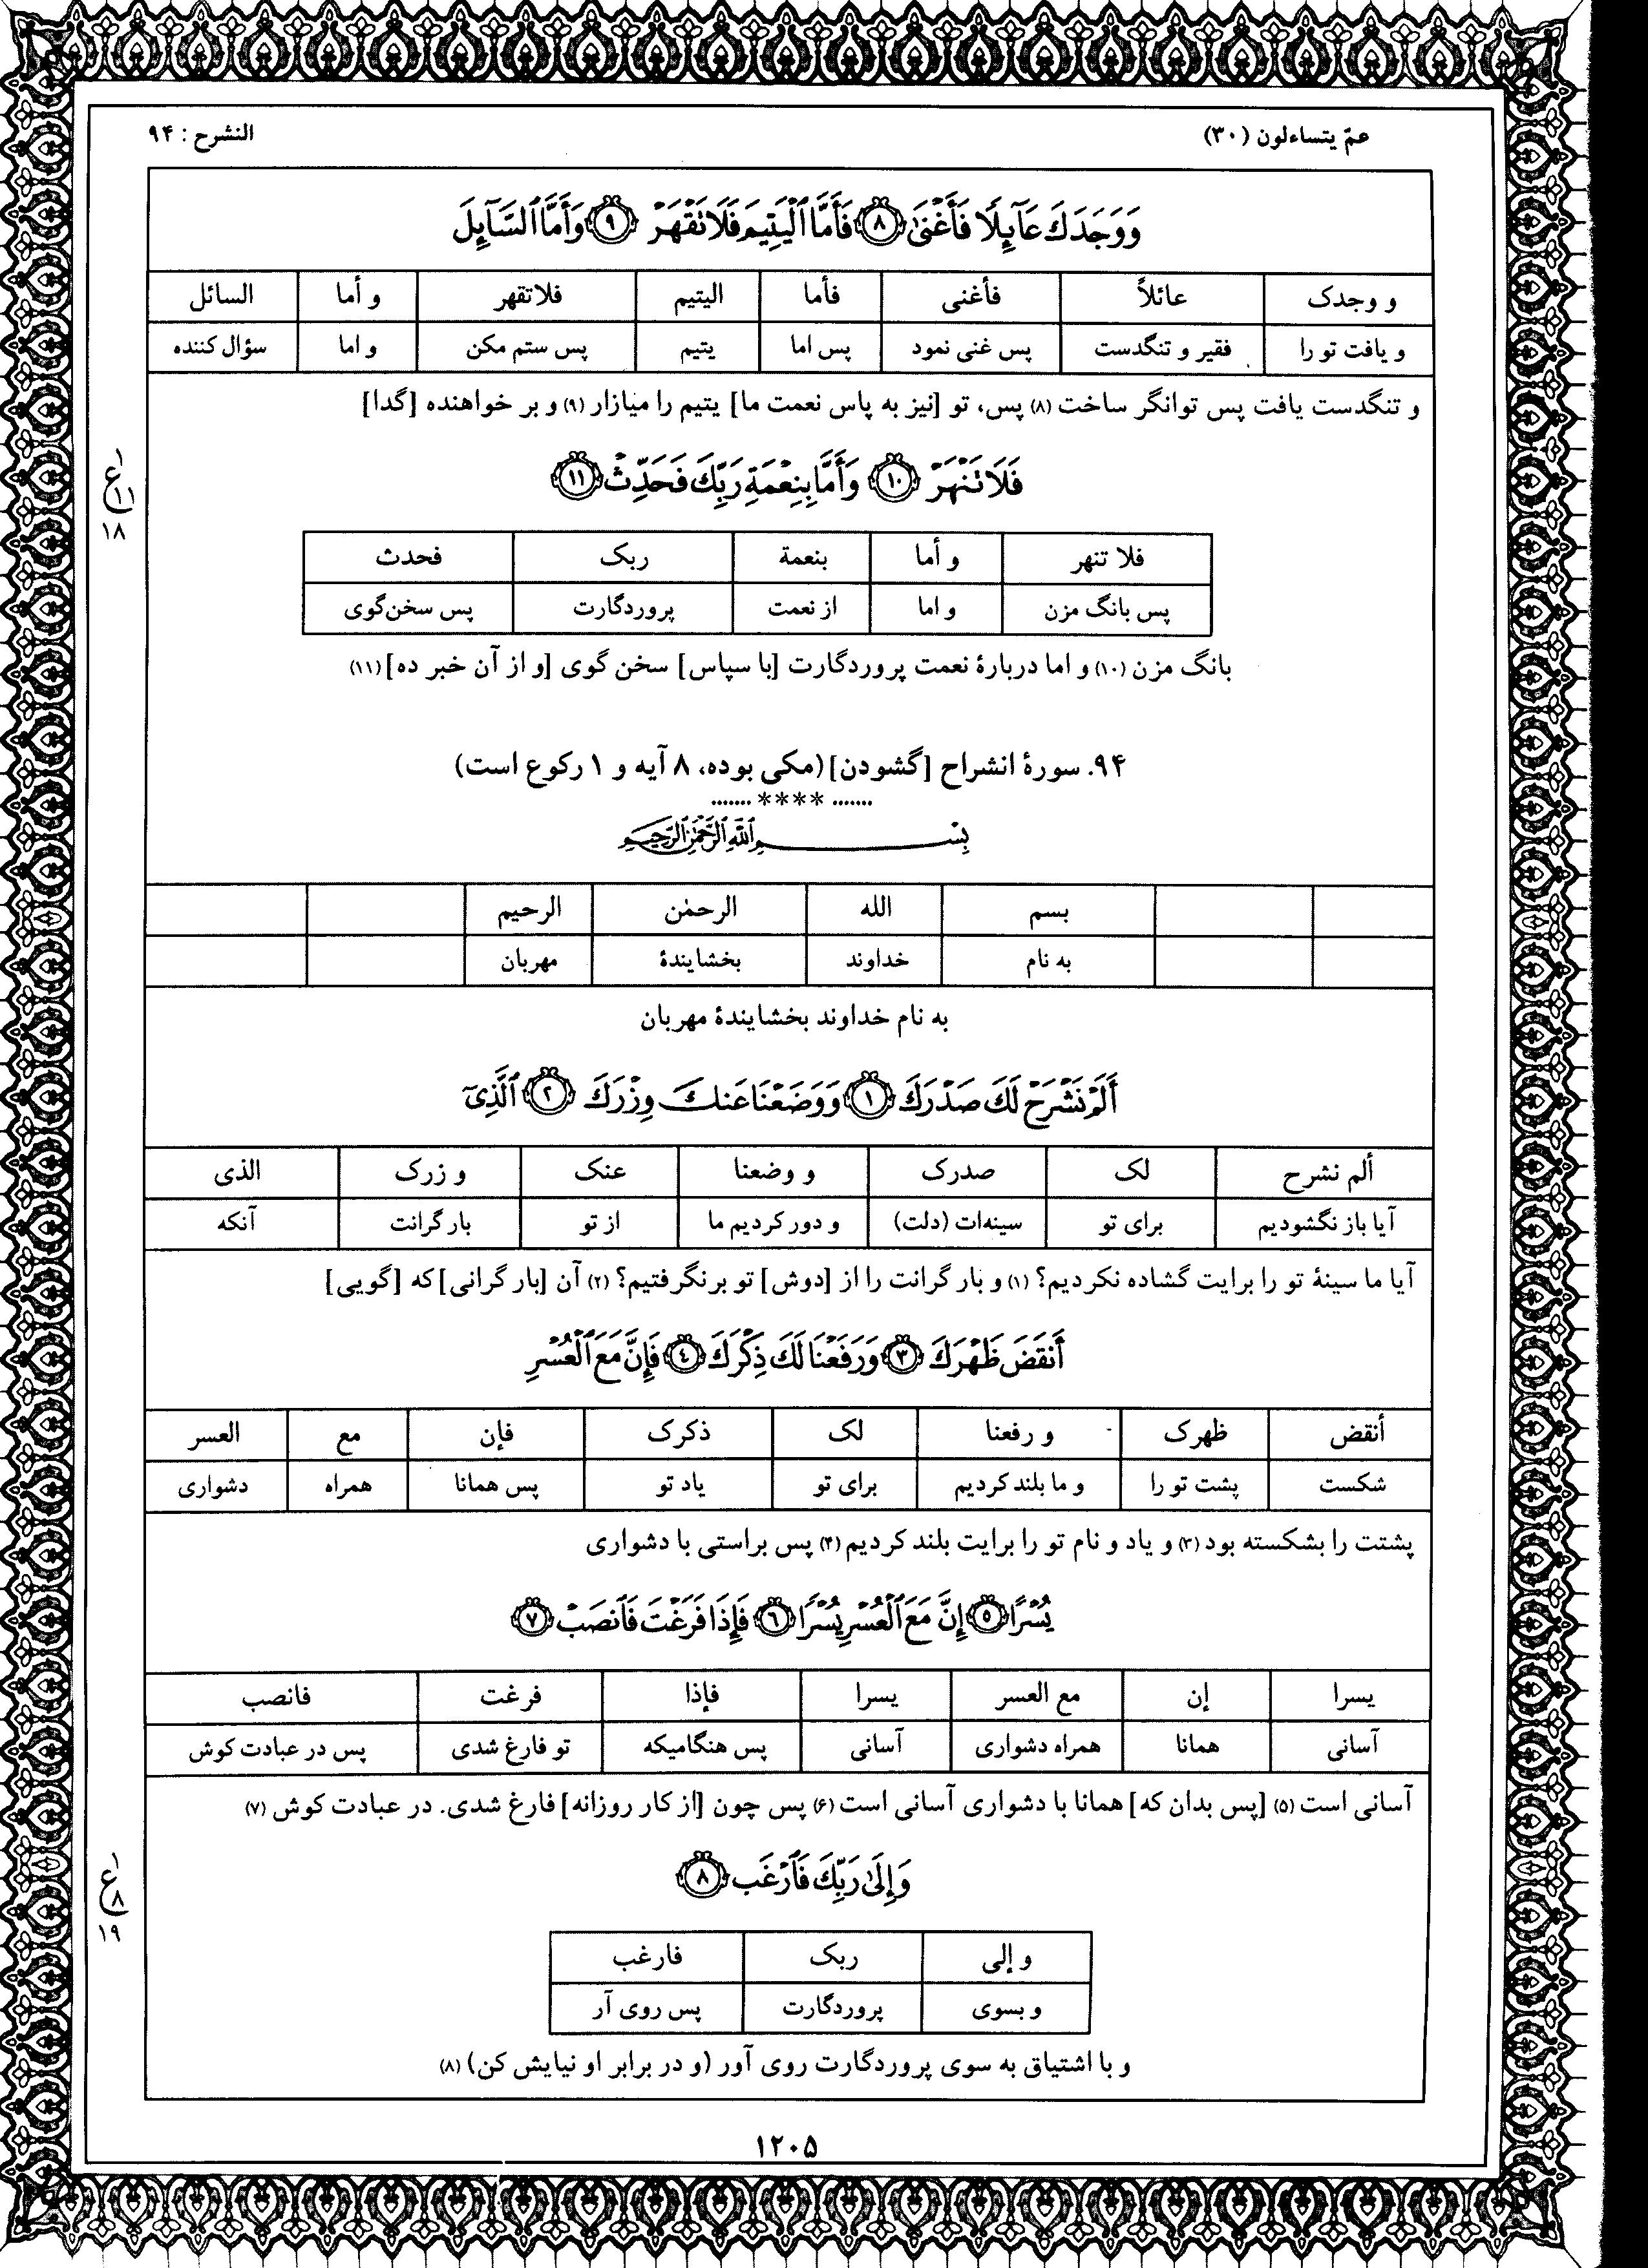 عمّ یتساءلون (۳۰)
النشرح : ۹۴
وَوَجَدَكَ عَآئِلًا فَأَغْنَىٰ ۝٨ فَأَمَّا ٱلْيَتِيمَ فَلَا تَقْهَرْ ۝٩ وَأَمَّا ٱلسَّآئِلَ
و وجدک عائلاً فأغنی فأما الیتیم فلاتقهر و أما السائل
و یافت تو را فقیر و تنگدست پس غنی نمود پس اما یتیم پس ستم مکن و اما سؤال کننده
و تنگدست یافت پس توانگر ساخت (۸) پس، تو [نیز به پاس نعمت ما] یتیم را میازار (۹) و بر خواهنده [گدا]
فَلَا تَنْهَرْ ۝١٠ وَأَمَّا بِنِعْمَةِ رَبِّكَ فَحَدِّثْ ۝١١
۱
ع
۱۱
۱۸
فلا تنهر و أما بنعمة ربک فحدث
پس بانگ مزن و اما از نعمت پروردگارت پس سخن‌گوی
بانگ مزن (۱۰) و اما دربارهٔ نعمت پروردگارت [با سپاس] سخن گوی [و از آن خبر ده] (۱۱)
۹۴. سورهٔ انشراح [گشودن] (مکی بوده، ۸ آیه و ۱ رکوع است)
....... **** .......
بِسْمِ ٱللَّهِ ٱلرَّحْمَٰنِ ٱلرَّحِيمِ
بسم الله الرحمٰن الرحیم
به نام خداوند بخشایندهٔ مهربان
به نام خداوند بخشایندهٔ مهربان
أَلَمْ نَشْرَحْ لَكَ صَدْرَكَ ۝١ وَوَضَعْنَا عَنكَ وِزْرَكَ ۝٢ ٱلَّذِىٓ
ألم نشرح لک صدرک و وضعنا عنک و زرک الذی
آیا باز نگشودیم برای تو سینه‌ات (دلت) و دور کردیم ما از تو بار گرانت آنکه
آیا ما سینهٔ تو را برایت گشاده نکردیم؟ (۱) و بار گرانت را از [دوش] تو برنگرفتیم؟ (۲) آن [بار گرانی] که [گویی]
أَنقَضَ ظَهْرَكَ ۝٣ وَرَفَعْنَا لَكَ ذِكْرَكَ ۝٤ فَإِنَّ مَعَ ٱلْعُسْرِ
أنقض ظهرک و رفعنا لک ذکرک فإن مع العسر
شکست پشت تو را و ما بلند کردیم برای تو یاد تو پس همانا همراه دشواری
پشتت را بشکسته بود (۳) و یاد و نام تو را برایت بلند کردیم (۴) پس براستی با دشواری
يُسْرًا ۝٥ إِنَّ مَعَ ٱلْعُسْرِ يُسْرًا ۝٦ فَإِذَا فَرَغْتَ فَٱنصَبْ ۝٧
یسرا إن مع العسر یسرا فإذا فرغت فانصب
آسانی همانا همراه دشواری آسانی پس هنگامیکه تو فارغ شدی پس در عبادت کوش
آسانی است (۵) [پس بدان که] همانا با دشواری آسانی است (۶) پس چون [از کار روزانه] فارغ شدی. در عبادت کوش (۷)
وَإِلَىٰ رَبِّكَ فَٱرْغَب ۝٨
۱
ع
۸
۱۹
و إلی ربک فارغب
و بسوی پروردگارت پس روی آر
و با اشتیاق به سوی پروردگارت روی آور (و در برابر او نیایش کن) (۸)
۱۲۰۵